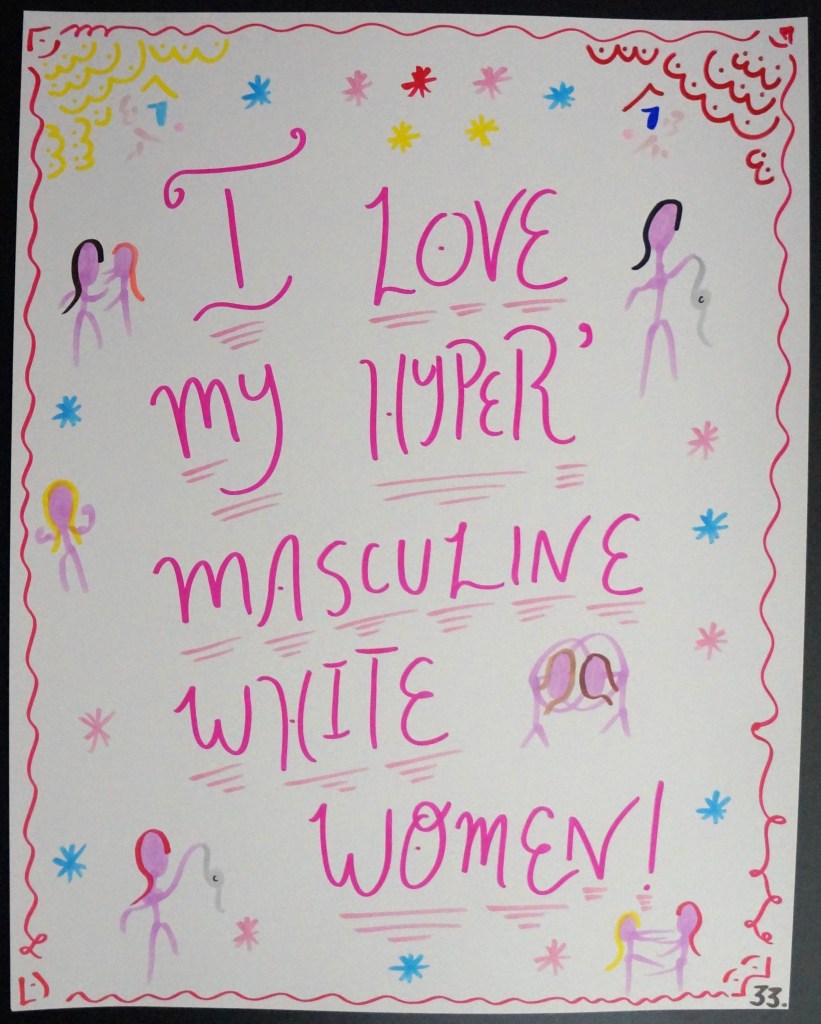 I LOVE
MY HYPER'
MASCULINE
WHITE
WOMEN!
33.